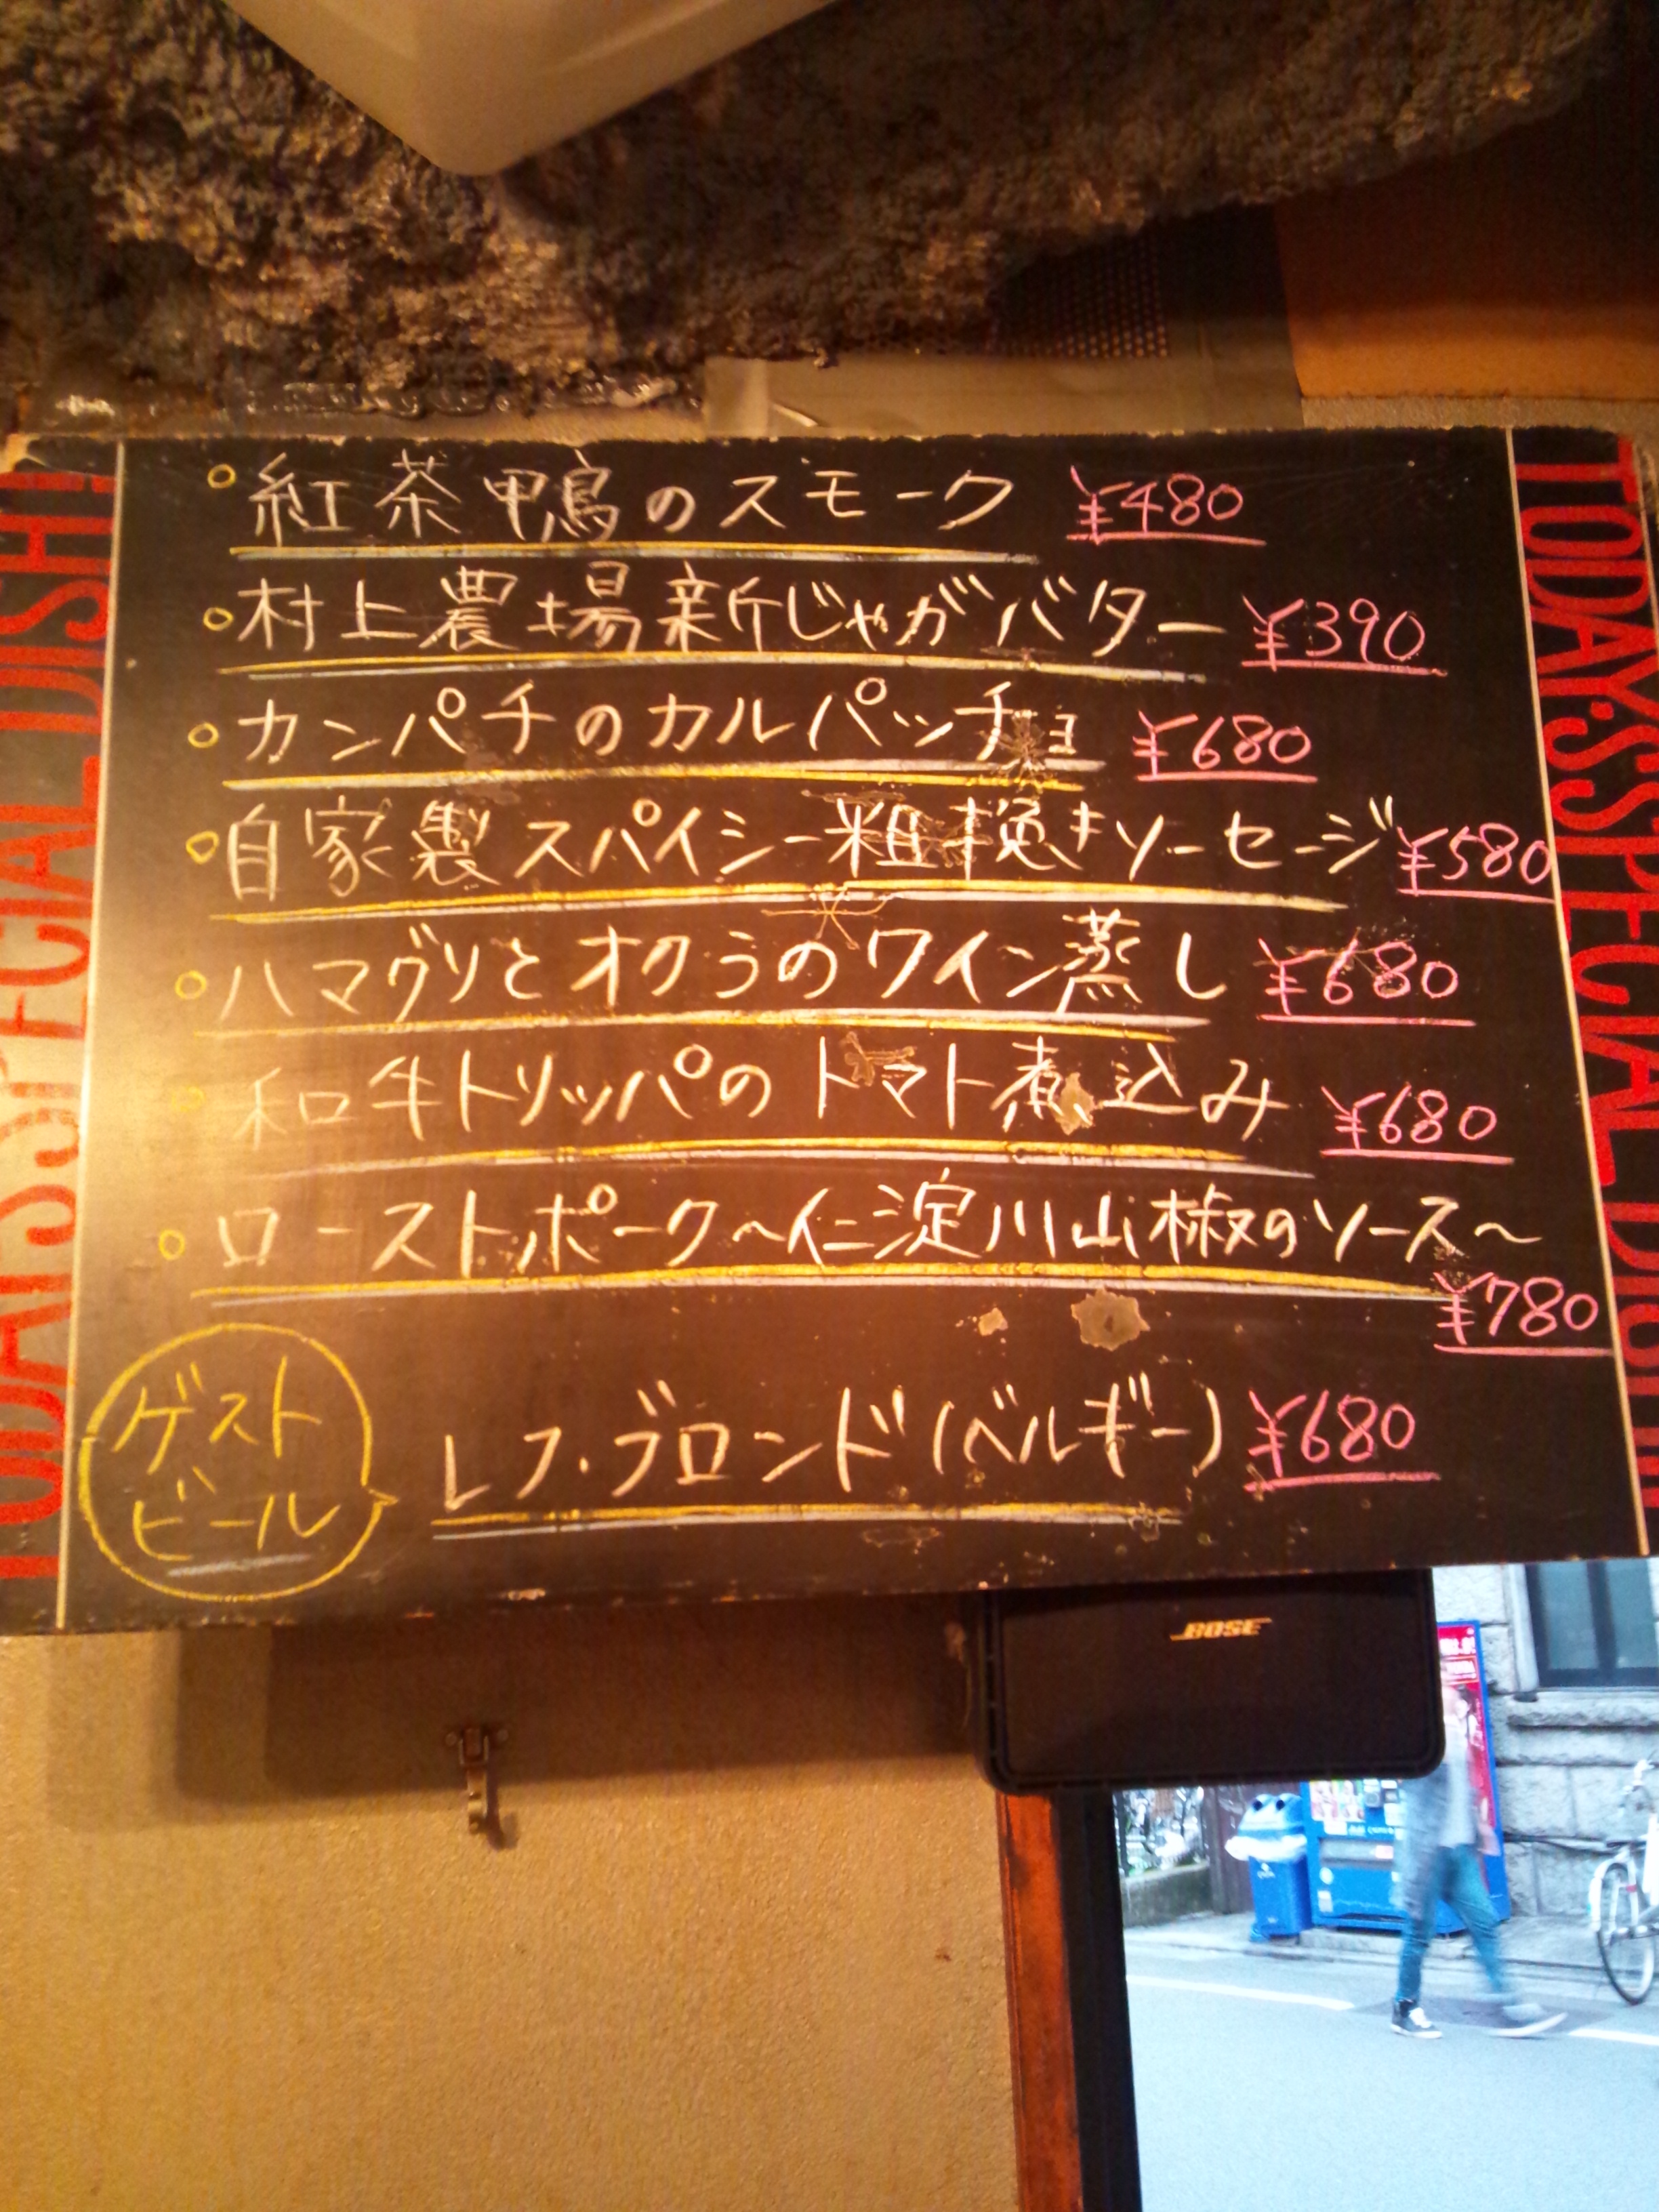 TODAY'S SPECIAL DISH
紅茶鴨のスモーク ¥480
村上農場新じゃがバター ¥390
カンパチのカルパッチョ ¥680
自家製スパイシー粗挽きソーセージ ¥580
ハマグリとオクラのワイン蒸し ¥680
和牛トリッパのトマト煮込み ¥680
ローストポーク〜仁淀川山椒のソース〜
¥780
ゲスト
ビール
レフ・ブロンド(ベルギー) ¥680
TODAY'S SPECIAL DISH
BOSE